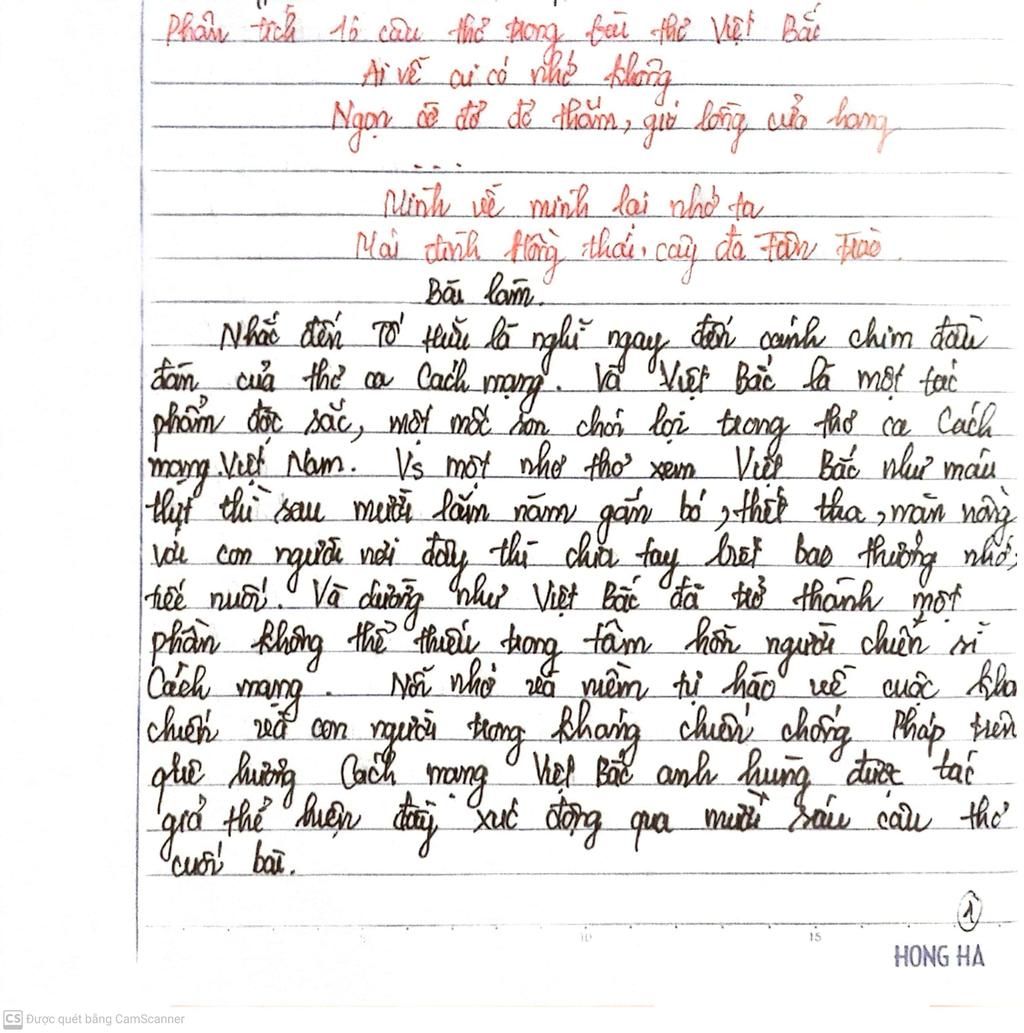 Phân tích 16 câu thơ trong bài thơ Việt Bắc
Ai về ai có nhớ không
Ngọn cờ đỏ đỏ thắm, gió lồng cửa hang
...
Mình về mình lại nhớ ta
Mái đình Hồng Thái, cây đa Tân Trào.
Bài làm.
Nhắc đến Tố Hữu là nghĩ ngay đến cánh chim đầu
đàn của thơ ca Cách mạng. Và Việt Bắc là một tác
phẩm đặc sắc, một mốc son chói lọi trong thơ ca Cách
mạng Việt Nam. Vs một nhà thơ xem Việt Bắc như máu
thịt thì sau mười lăm năm gắn bó, thiết tha, mặn nồng
với con người nơi đây thì chia tay biết bao thương nhớ,
tiếc nuối. Và dường như Việt Bắc đã trở thành một
phần không thể thiếu trong tâm hồn người chiến sĩ
Cách mạng. Nỗi nhớ và niềm tự hào về cuộc khá
chiến và con người trong kháng chiến chống Pháp trên
quê hương Cách mạng Việt Bắc anh hùng được tác
giả thể hiện đầy xúc động qua mười sáu câu thơ
cuối bài.
1
10 15
HONG HA
CS Được quét bằng CamScanner